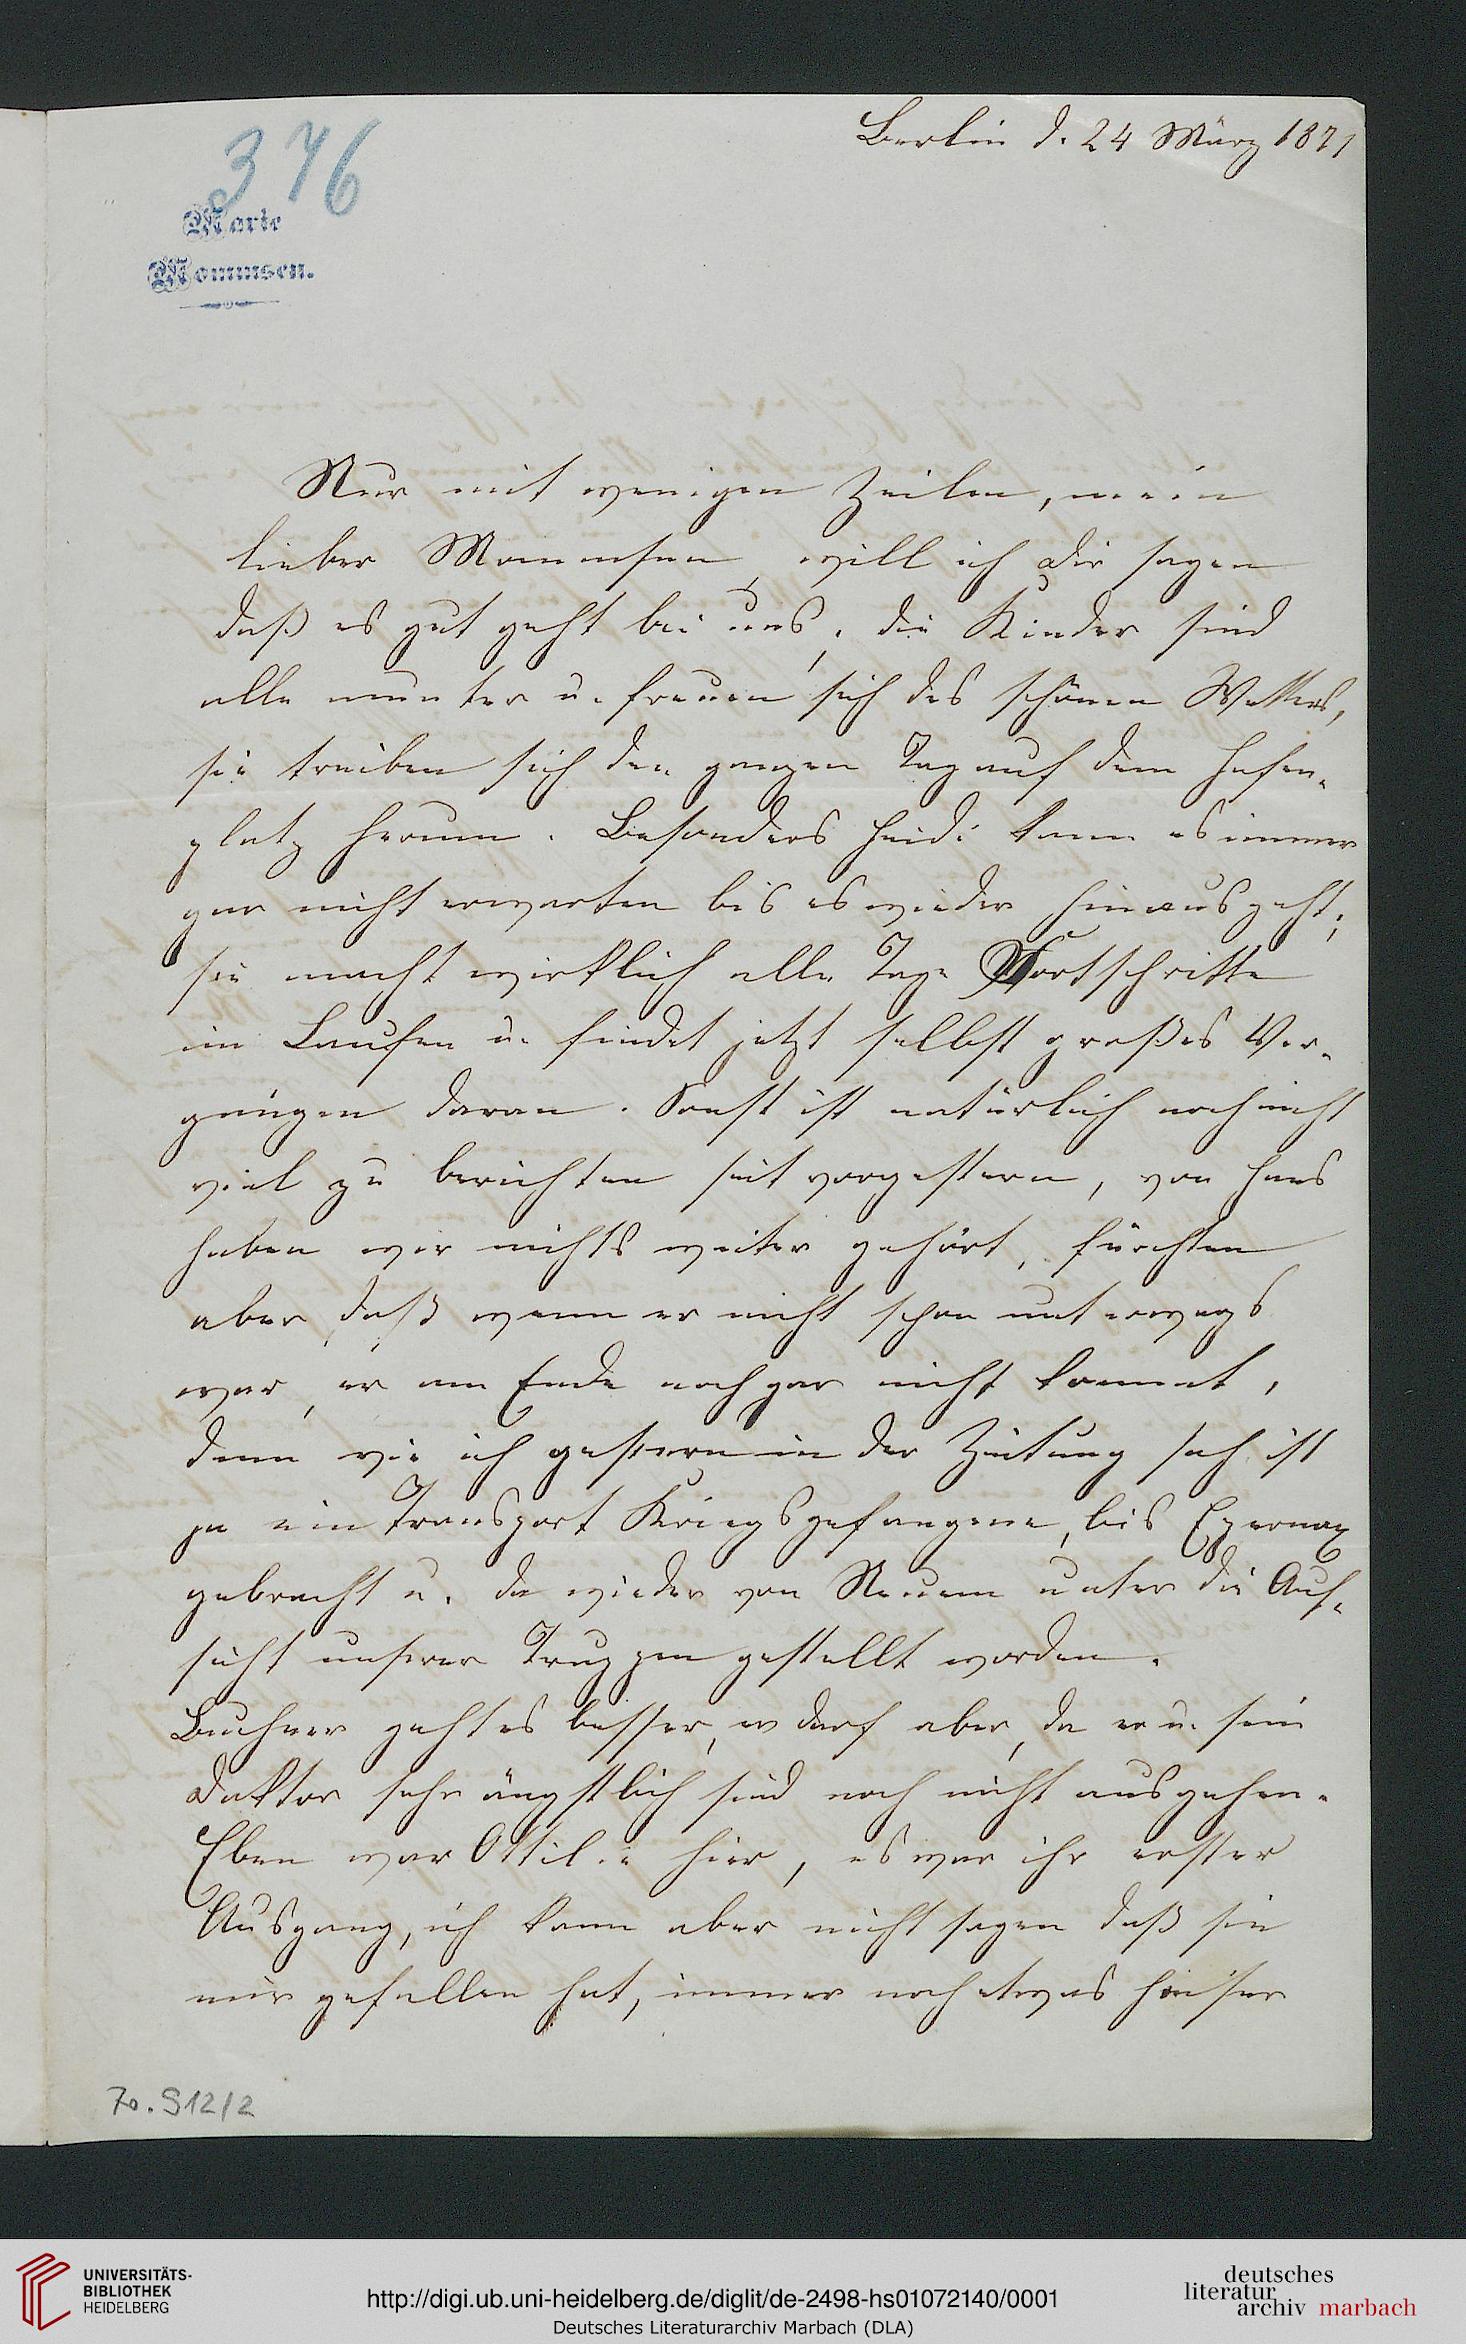 Berlin d. 24 März 1871
376
Marie
Mommsen.
Nur mit wenigen Zeilen, mein
lieber Mommsen, will ich Dir sagen
daß es gut geht bei uns, die Kinder sind
alle munter u. freuen sich des schönen Wetters,
sie treiben sich den ganzen Tag auf dem Hafen-
platz herum. Besonders Heidi kann es immer
gar nicht erwarten bis es wieder hinausgeht;
sie macht wirklich alle Tage Fortschritte
im Laufen u. findet jetzt selbst großes Ver-
gnügen daran. Sonst ist natürlich noch nicht
viel zu berichten seit vorgestern, von Hans
haben wir nichts weiter gehört, fürchten
aber, daß wenn er nicht schon unterwegs
war, er am Ende noch gar nicht kommt,
denn wie ich gestern in der Zeitung sah ist
ja ein Transport Kriegsgefangene, bis Epernay
gebracht u. da wieder von Neuem unter die Auf-
sicht unserer Truppen gestellt worden.
Buchner geht es besser, er darf aber, da er u. sein
Doktor sehr ängstlich sind noch nicht ausgehen.
Eben war Ottilie hier, es war ihr erster
Ausgang, ich kann aber nicht sagen daß sie
mir gefallen hat, immer noch etwas heiser
70.512/2
UNIVERSITÄTS-
BIBLIOTHEK
HEIDELBERG
http://digi.ub.uni-heidelberg.de/diglit/de-2498-hs01072140/0001
Deutsches Literaturarchiv Marbach (DLA)
deutsches
literatur
archiv marbach